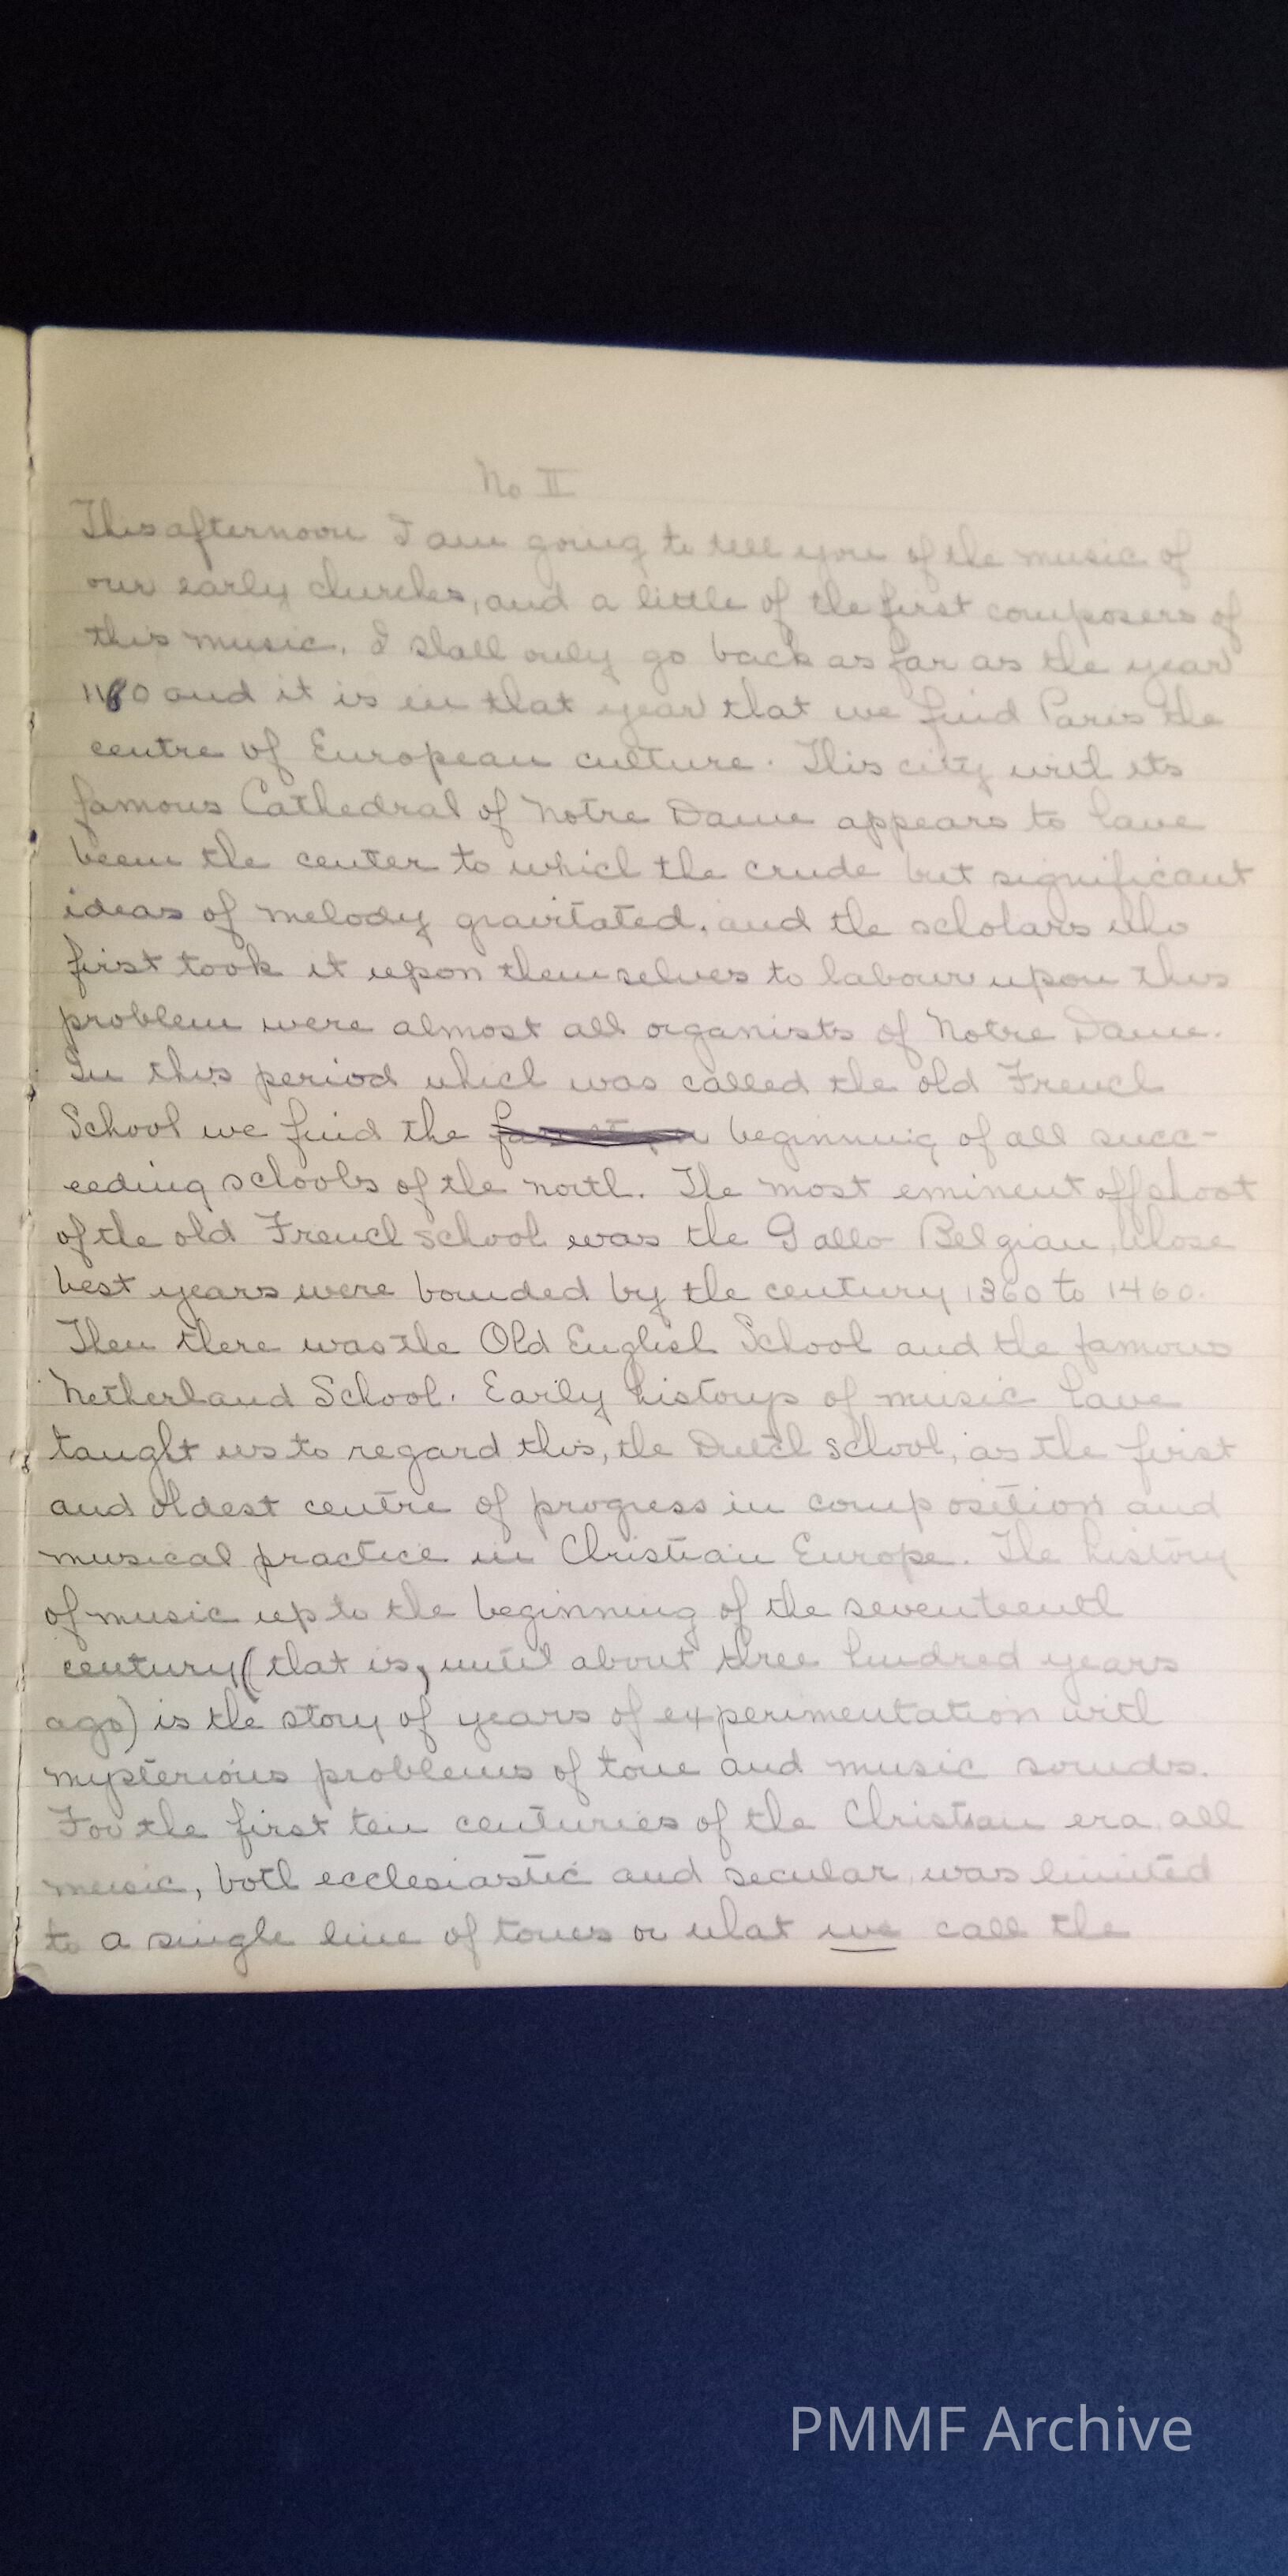 No II
This afternoon I am going to tell you of the music of
our early churches, and a little of the first composers of
this music. I shall only go back as far as the year
1180 and it is in that year that we find Paris the
centre of European culture. This city with its
famous Cathedral of Notre Dame appears to have
been the center to which the crude but significant
ideas of melody gravitated. and the scholars who
first took it upon themselves to labour upon this
problem were almost all organists of Notre Dame.
In this period which was called the old French
School we find the beginning of all succ-
eeding schools of the north. The most eminent offshoot
of the old French school was the Gallo Belgian, whose
best years were bounded by the century 1360 to 1460.
Then there was the Old English School and the famous
Netherland School. Early historys of music have
taught us to regard this, the Dutch school, as the first
and oldest centre of progress in composition and
musical practice in Christian Europe. The history
of music up to the beginning of the seventeenth
century (that is, until about three hundred years
ago) is the story of years of experimentation with
mysterious problems of tone and music sounds.
For the first ten centuries of the Christian era, all
music, both ecclesiastic and secular, was limited
to a single line of tones or what we call the
PMMF Archive